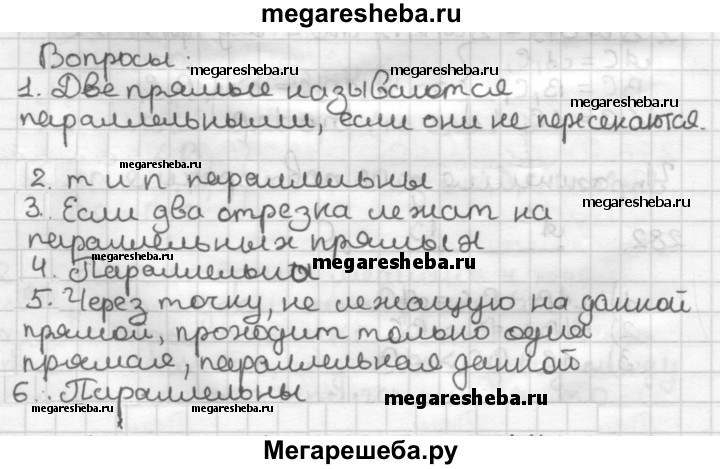 megaresheba.ru
Вопросы:
megaresheba.ru
1. Две прямые называются
megaresheba.ru
параллельными, если они не пересекаются.
megaresheba.ru
2. m и n параллельны
3. Если два отрезка лежат на
параллельных прямых
4. Параллельны
megaresheba.ru
5. Через точку, не лежащую на данной
прямой, проходит только одна
прямая, параллельная данной
6. Параллельны
megaresheba.ru
megaresheba.ru
megaresheba.ru
Мегарешеба.ру